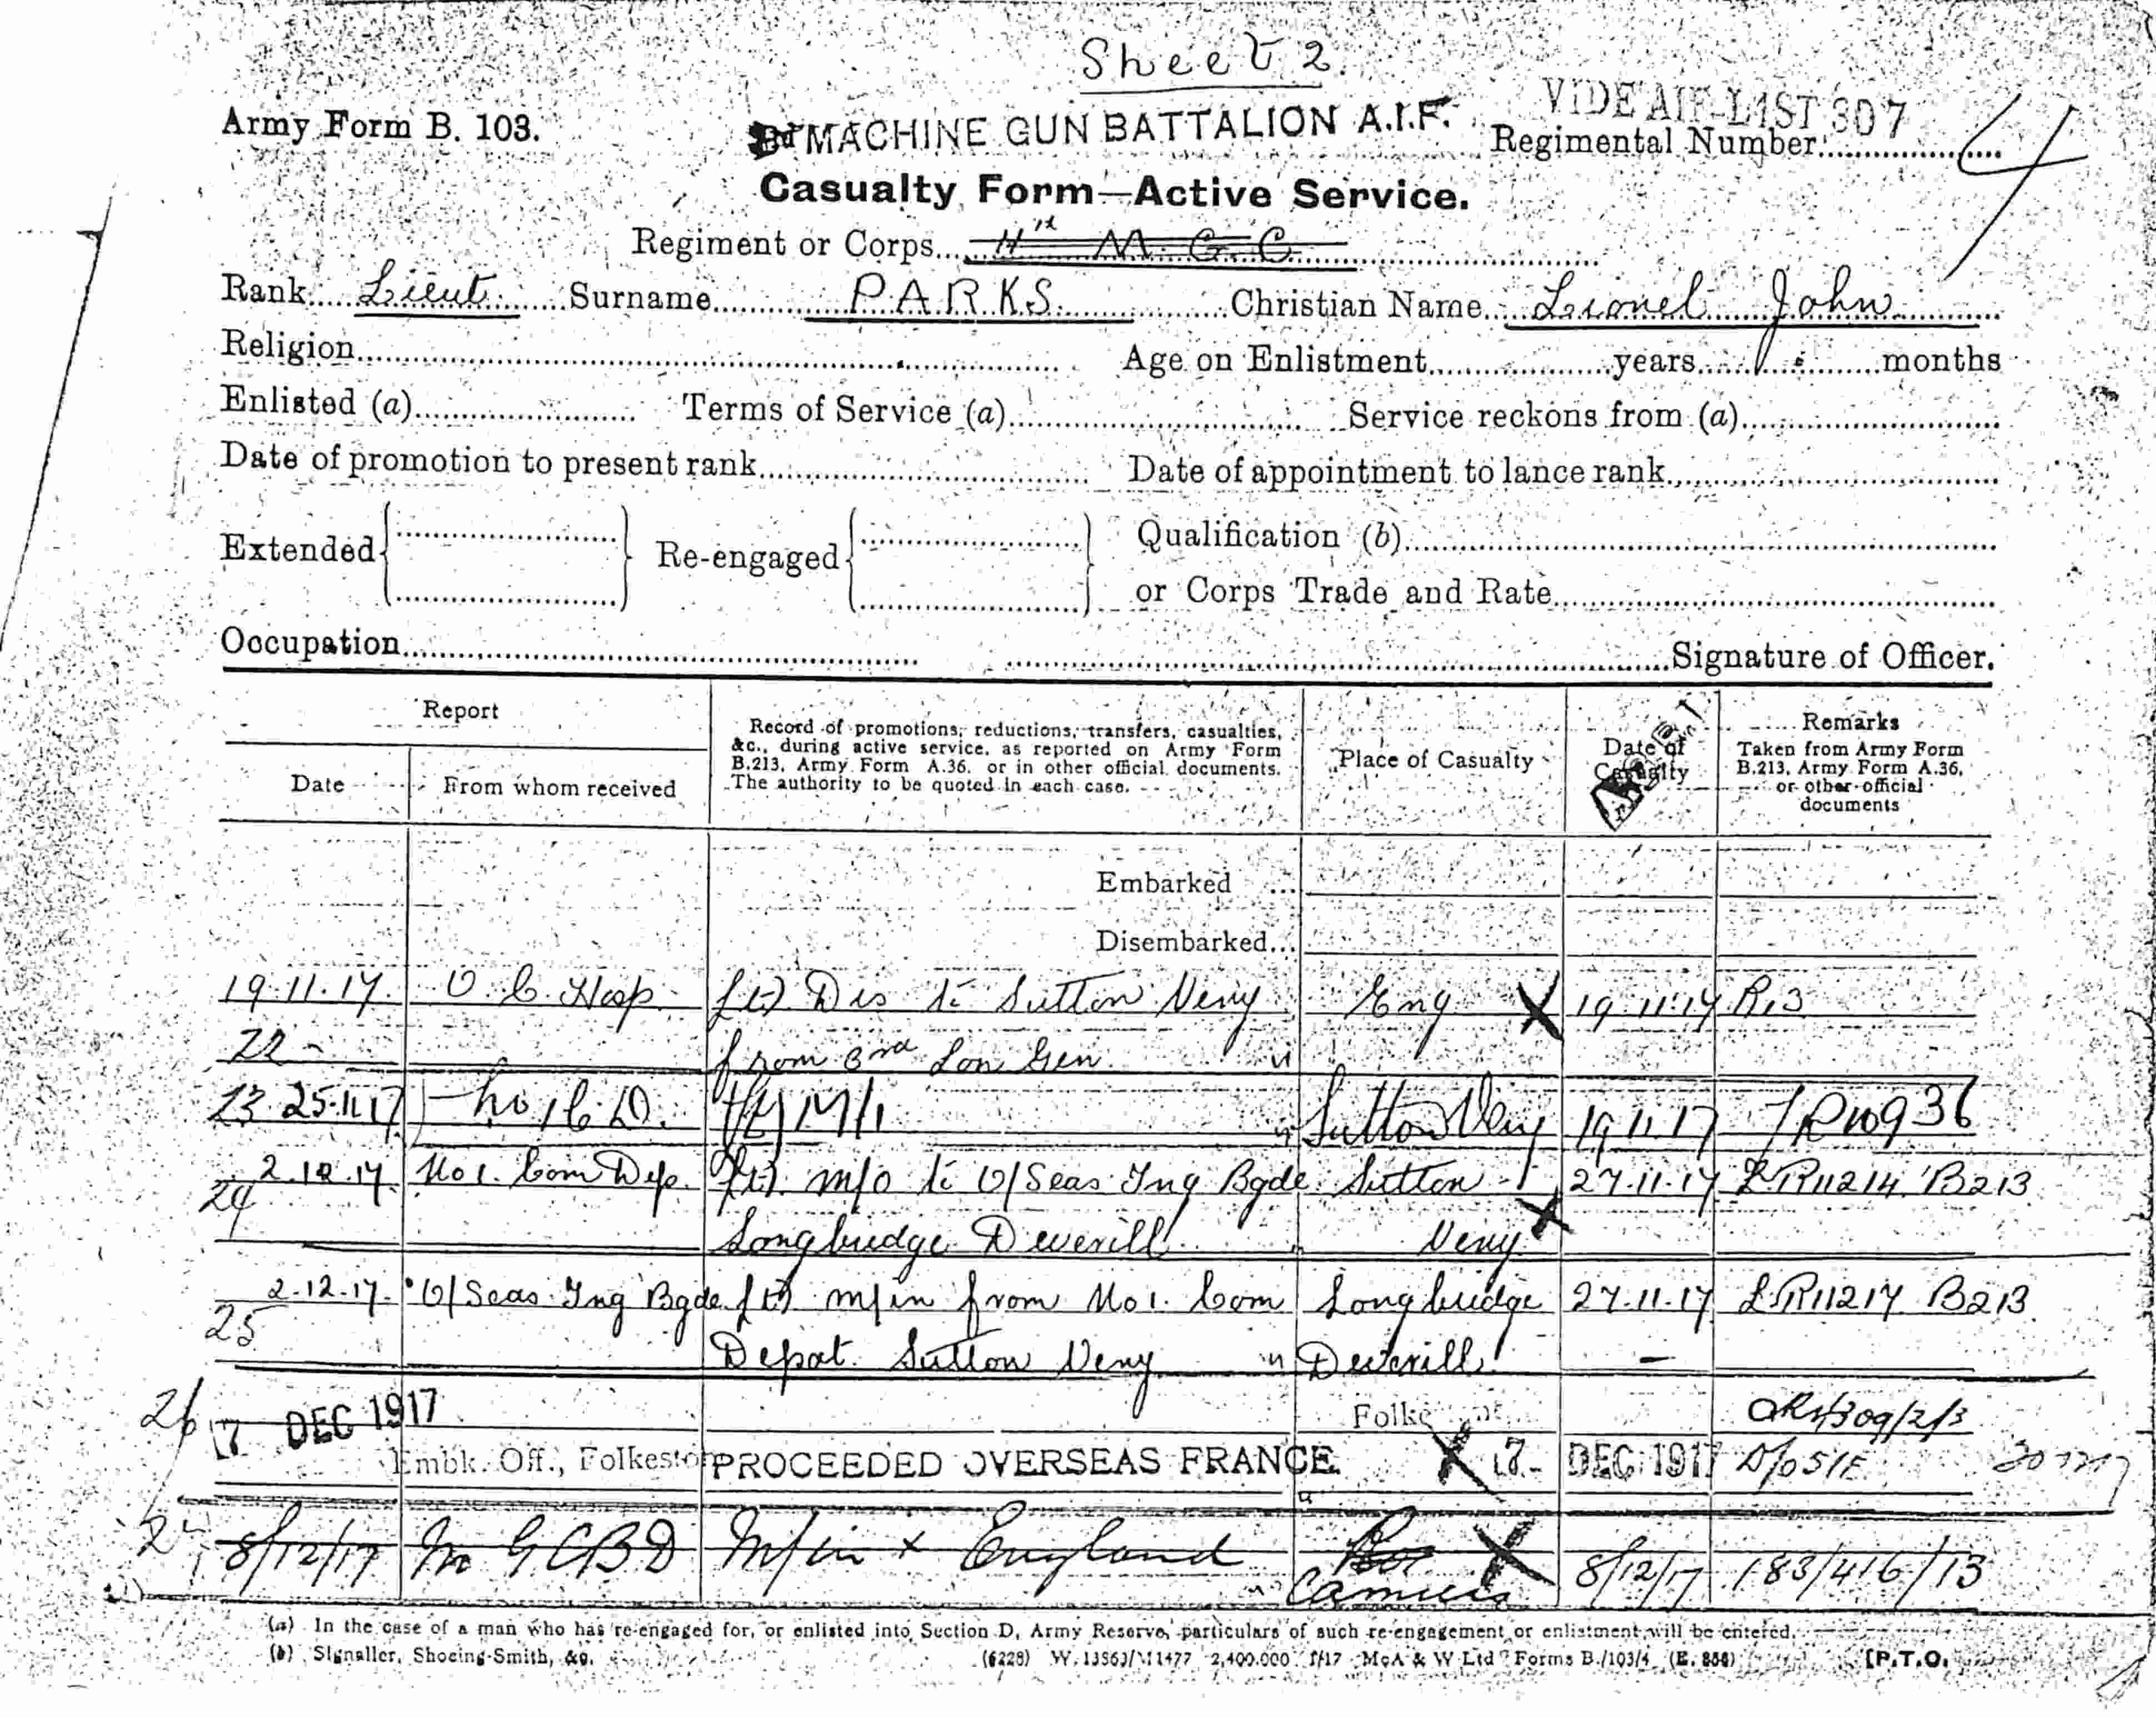 Sheet 2.
VIDE AIF LIST 307
Army Form B. 103.
MACHINE GUN BATTALION A.I.F.
Regimental Number
Casualty Form—Active Service.
Regiment or Corps M G C
Rank Lieut Surname PARKS Christian Name Lionel John
Religion Age on Enlistment years months
Enlisted (a) Terms of Service (a) Service reckons from (a)
Date of promotion to present rank Date of appointment to lance rank
Extended Re-engaged Qualification (b)
or Corps Trade and Rate
Occupation Signature of Officer.
Report
Date From whom received
Record of promotions, reductions, transfers, casualties,
&c., during active service, as reported on Army Form
B.213, Army Form A.36, or in other official documents.
The authority to be quoted in each case.
Place of Casualty
Date of
Casualty
Remarks
Taken from Army Form
B.213, Army Form A.36,
or other official
documents
Embarked ...
Disembarked...
19.11.17. O.C. Hosp. Dis to Sutton Veny Eng X 19.11.17
22 from 3rd Lon Gen.
23 25.11.17 M/I Sutton Veny 19.11.17
24 2.12.17. No 1. Com Dep. m/o to O/Seas Tng Bgde Sutton 27.11.17 LR11214 B213
Longbridge Deverill Veny X
2.12.17. O/Seas Tng Bgde m/in from No 1. Com Longbridge 27.11.17 LR11217 B213
25 Depot. Sutton Veny Deverill
26 7 DEC 1917
Embk. Off., Folkestone PROCEEDED OVERSEAS FRANCE. X 7 DEC 1917
8/12/17 M G C B D M/in x England Camiers X 8/12/17 183/416/13
(a) In the case of a man who has re-engaged for, or enlisted into Section D, Army Reserve, particulars of such re-engagement or enlistment will be entered.
(b) Signaller, Shoeing-Smith, &c. 2,400,000 McA & W Ltd Forms B./103/4 [P.T.O.